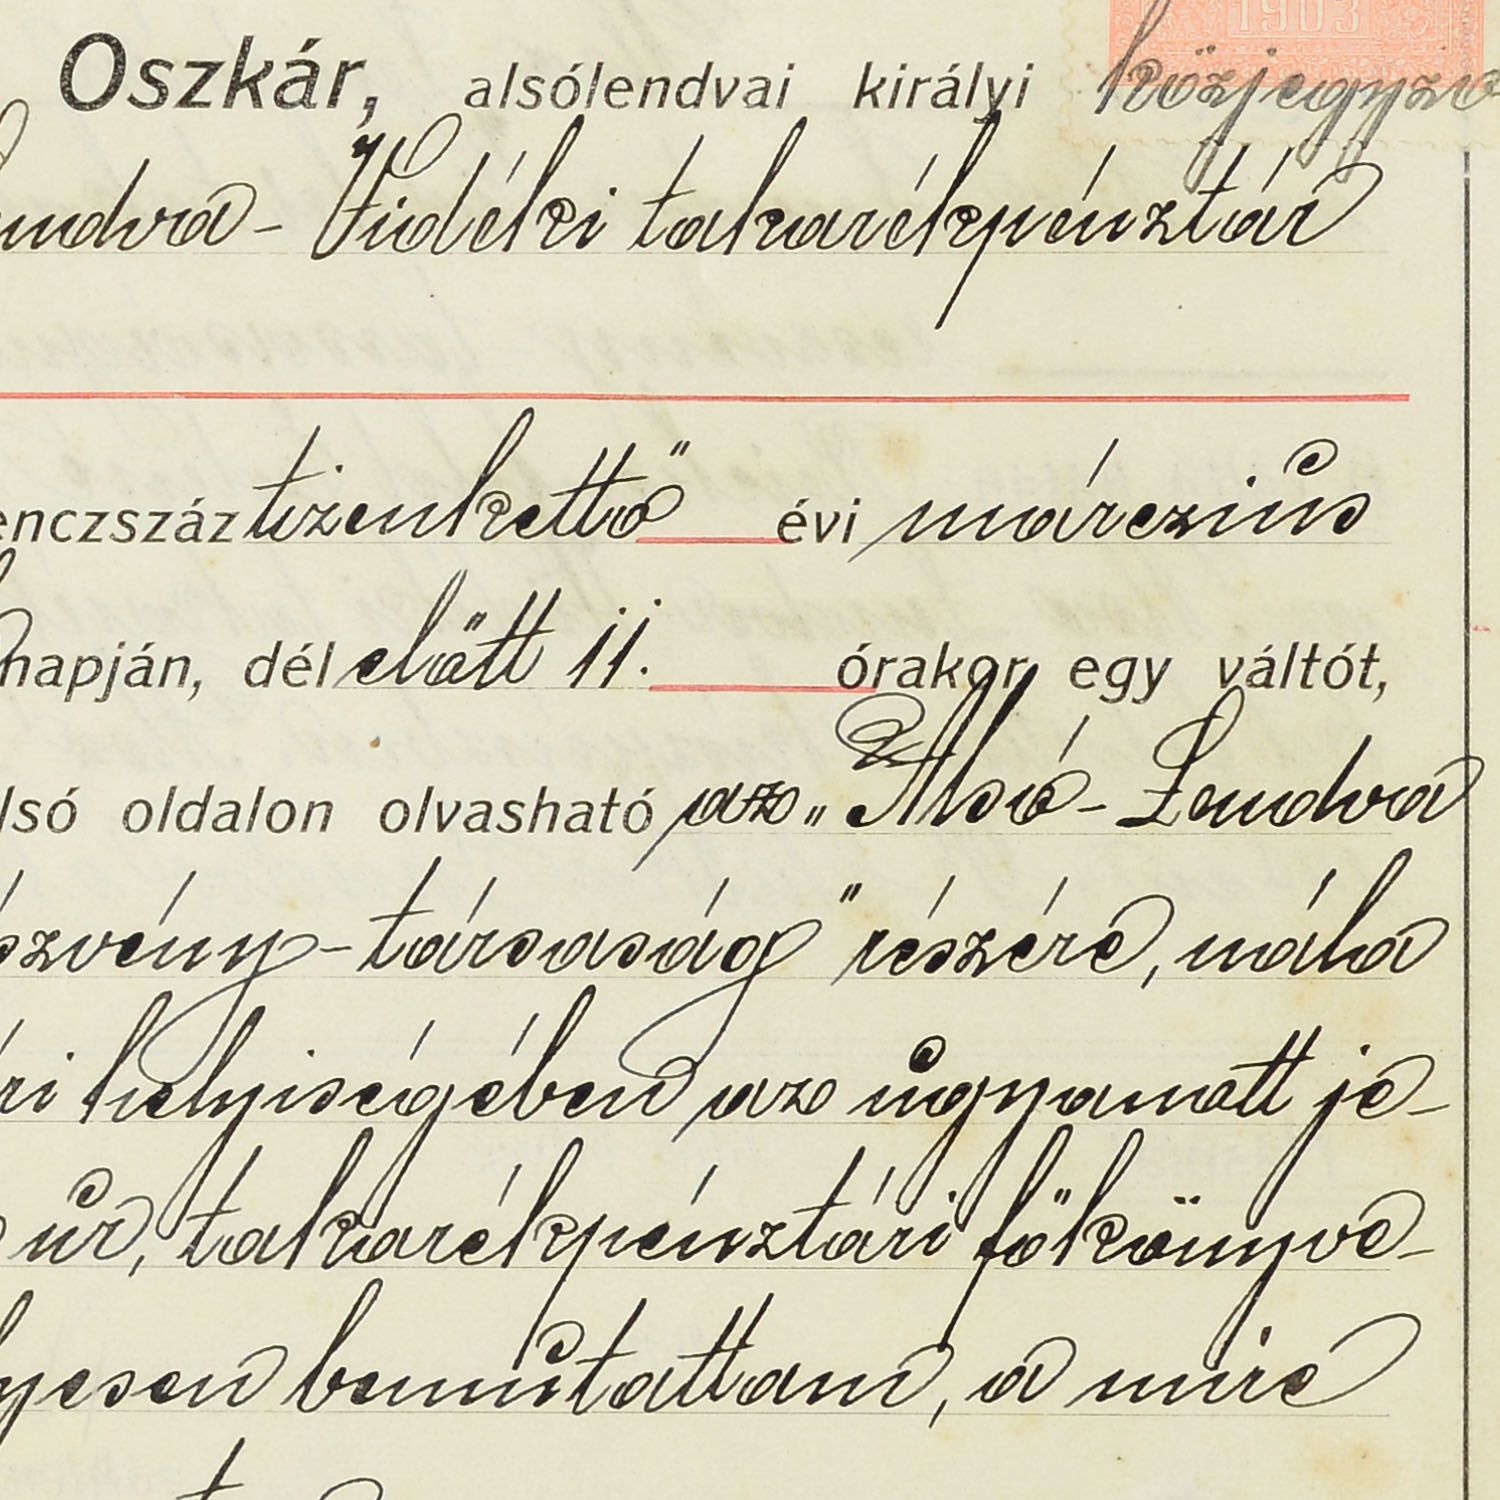 1903
Oszkár, alsólendvai királyi közjegyző
endva - Vidéki takarékpénztár
enczszáz tizenkettő évi márczius
napján, dél előtt 11. órakor egy váltót,
lső oldalon olvasható az „Alsó-Lendva
szvény-társaság" részére, nála
ri helyiségében az ugyanott je-
úr, takarékpénztári főkönyve-
lyesen bemutattam, a mire